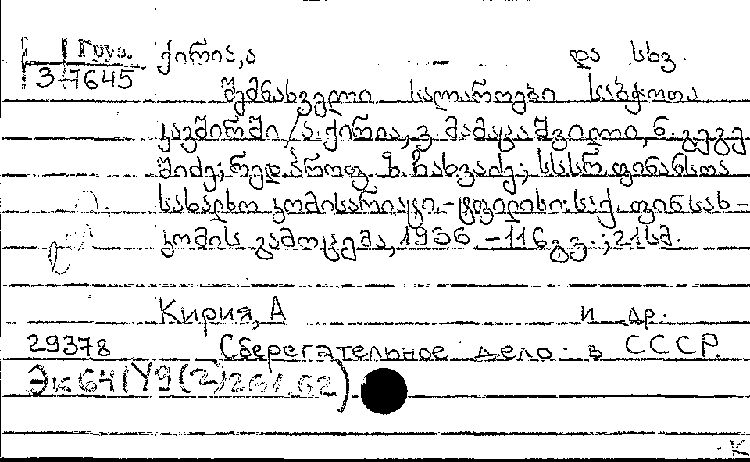 ქირია, ა და სხვ.
3/7645
შემნახველი სალაროები საბჭოთა
კავშირში / ა. ქირია, ვ. მამაცაშვილი, ნ. გეგე
შიძე; რედ. პროფ. ზ. ჩახვაძე; სსსრ. ფინანსთა
სახალხო კომისარიატი. - ტფილისი: საქ. ფინსახ-
კომის გამოცემა, 1936. - 116 გვ.; 21 სმ.
Кирия, А и др.
29378 Сберегательное дело в СССР.
Эк64(У9(2)261.62)
К